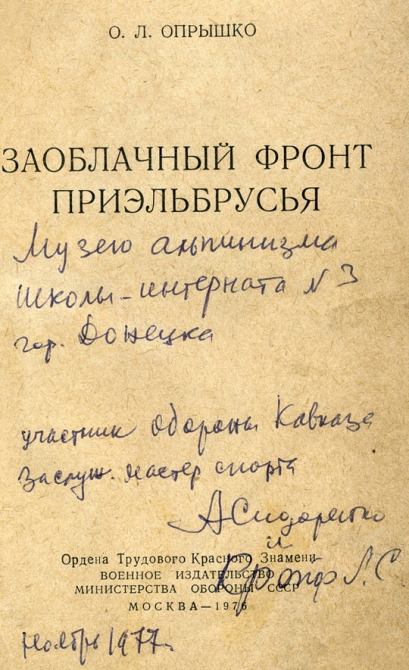 О. Л. ОПРЫШКО
ЗАОБЛАЧНЫЙ ФРОНТ
ПРИЭЛЬБРУСЬЯ
Музею альпинизма
школы-интерната N 3
гор. Донецка
участник обороны Кавказа
Заслуж. мастер спорта
АСидоренко
и
Ордена Трудового Красного Знамени
ВОЕННОЕ ИЗДАТЕЛЬСТВО
МИНИСТЕРСТВА ОБОРОНЫ СССР
МОСКВА—1976
ноябрь 1977.